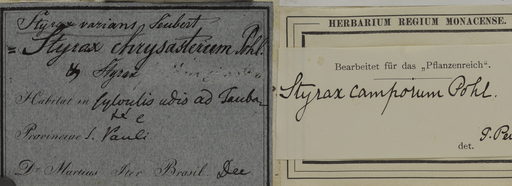 Styrax varians Seubert
= Styrax chrysasterum Pohl.
Styrax
Habitat in sylvulis udis ad Tauba-
té
Provinciae S. Pauli
Dr Martius Iter Brasil. Dec
HERBARIUM REGIUM MONACENSE.
Bearbeitet für das „Pflanzenreich“.
Styrax camporum Pohl.
J. Per
det.